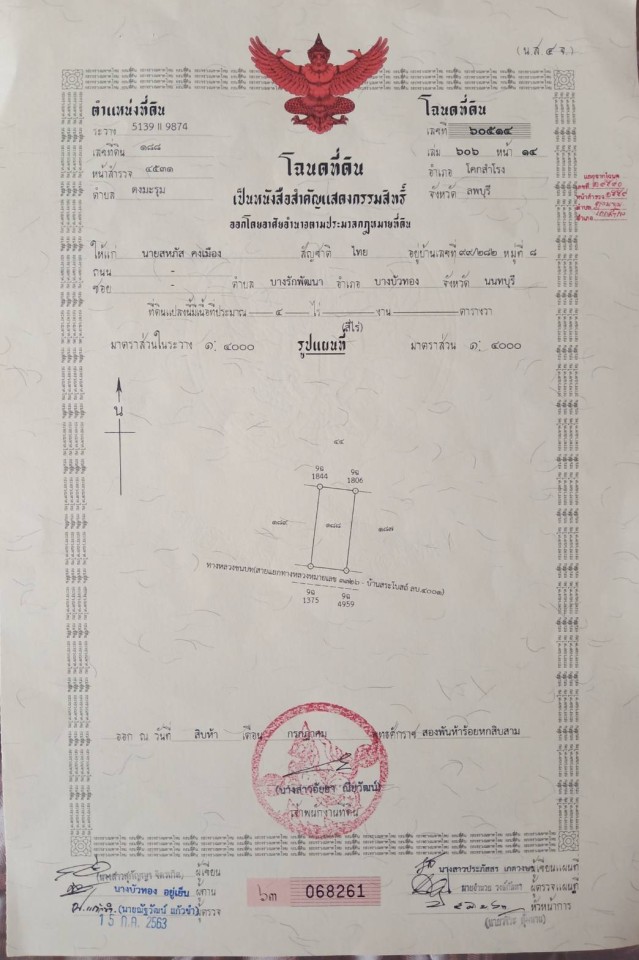 (น.ส. ๔ จ.)
ตำแหน่งที่ดิน
ระวาง 5139 II 9874
เลขที่ดิน ๑๘๘
หน้าสำรวจ ๔๕๓๑
ตำบล ดงมะรุม
โฉนดที่ดิน
เลขที่ ๖๐๕๑๔
เล่ม ๖๐๖ หน้า ๑๔
อำเภอ โคกสำโรง
จังหวัด ลพบุรี
โฉนดที่ดิน
เป็นหนังสือสำคัญแสดงกรรมสิทธิ์
ออกโดยอาศัยอำนาจตามประมวลกฎหมายที่ดิน
ให้แก่ นายสหภัส คงเมือง สัญชาติ ไทย อยู่บ้านเลขที่ ๙๙/๒๘๒ หมู่ที่ ๘
ถนน -
ซอย - ตำบล บางรักพัฒนา อำเภอ บางบัวทอง จังหวัด นนทบุรี
ที่ดินแปลงนี้มีเนื้อที่ประมาณ ๔ ไร่ งาน ตารางวา
(สี่ไร่)
มาตราส่วนในระวาง ๑: ๔๐๐๐ รูปแผนที่ มาตราส่วน ๑: ๔๐๐๐
น
๔๔
9ฉ 9ฉ
1844 1806
๑๘๙ ๑๘๘ ๑๘๗
ทางหลวงชนบท(สายแยกทางหลวงหมายเลข ๓๓๒๖ - บ้านสระโบสถ์ ลบ.๔๐๐๑)
9ฉ 9ฉ
1375 4959
ออก ณ วันที่ สิบห้า เดือน กรกฎาคม พุทธศักราช สองพันห้าร้อยหกสิบสาม
เจ้าพนักงานที่ดิน
ผู้เขียน
บางบัวทอง อยู่เย็น ผู้ทาน
(นายณัฐวัฒน์ แก้วขำ) ผู้ตรวจ
15 ก.ค. 2563
๖๓ 068261
นางสาวประภัสสร ผู้เขียนแผนที่
ผู้ตรวจแผนที่
หัวหน้าการ